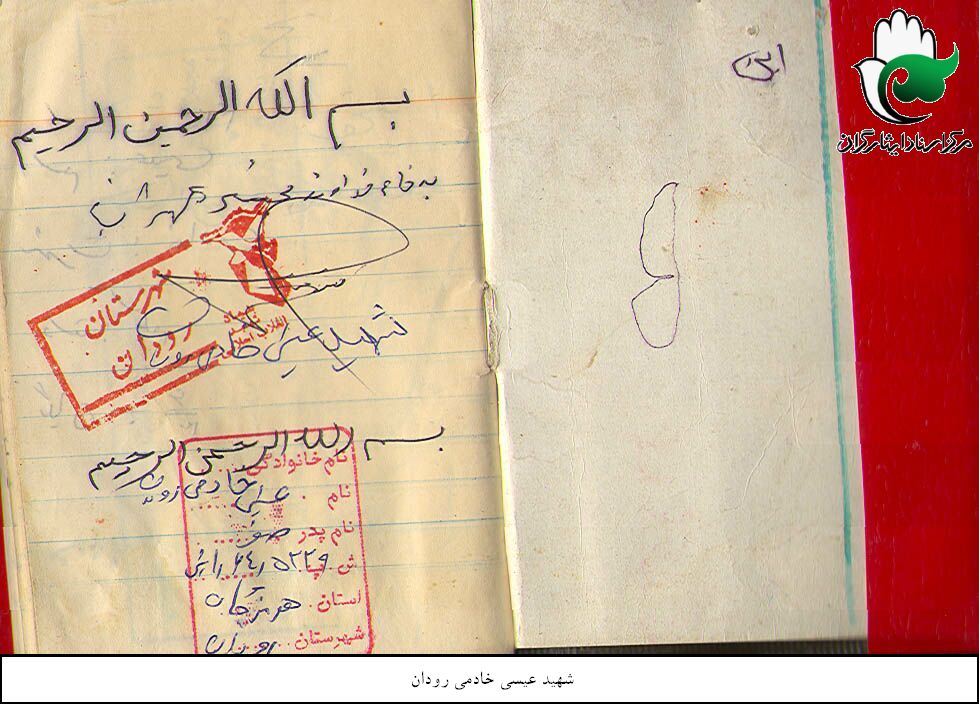 این
مرکز اسناد ایثارگران
بسم الله الرحمن الرحیم
به نام خداوند
شهرستان
رودان
انقلاب اسلامی
شهید عیسی خادمی رودان
بسم الله الرحمن الرحیم
نام خانوادگی خادمی رودان
نام عیسی
نام پدر صفر
استان هرمزگان
شهرستان رودان
شهید عیسی خادمی رودان